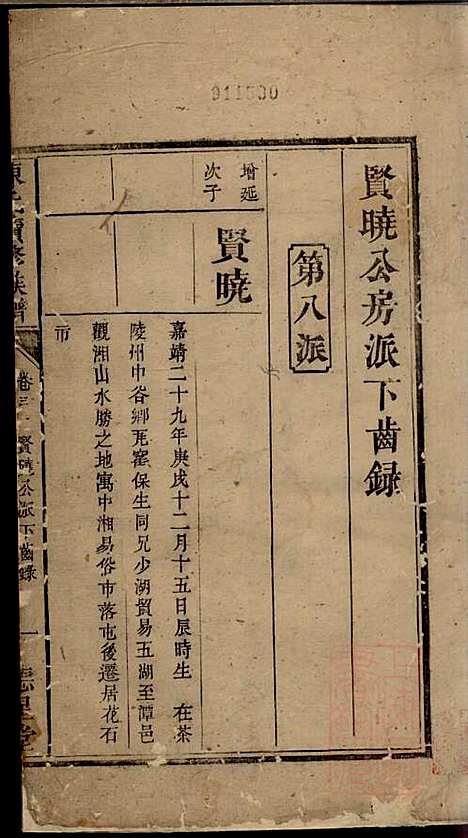 911530
賢曉公房派下齒録
第八派
增延
次子
賢曉
嘉靖二十九年庚戌十二月十五日辰時生 在茶
陵州中谷鄉瓦窰保生同兄少湖貿易五湖至潭邑
觀湘山水勝之地寓中湘易俗市落屯後遷居花石
市
陳氏續修族譜
卷三 賢曉公派下齒錄
一
德星堂